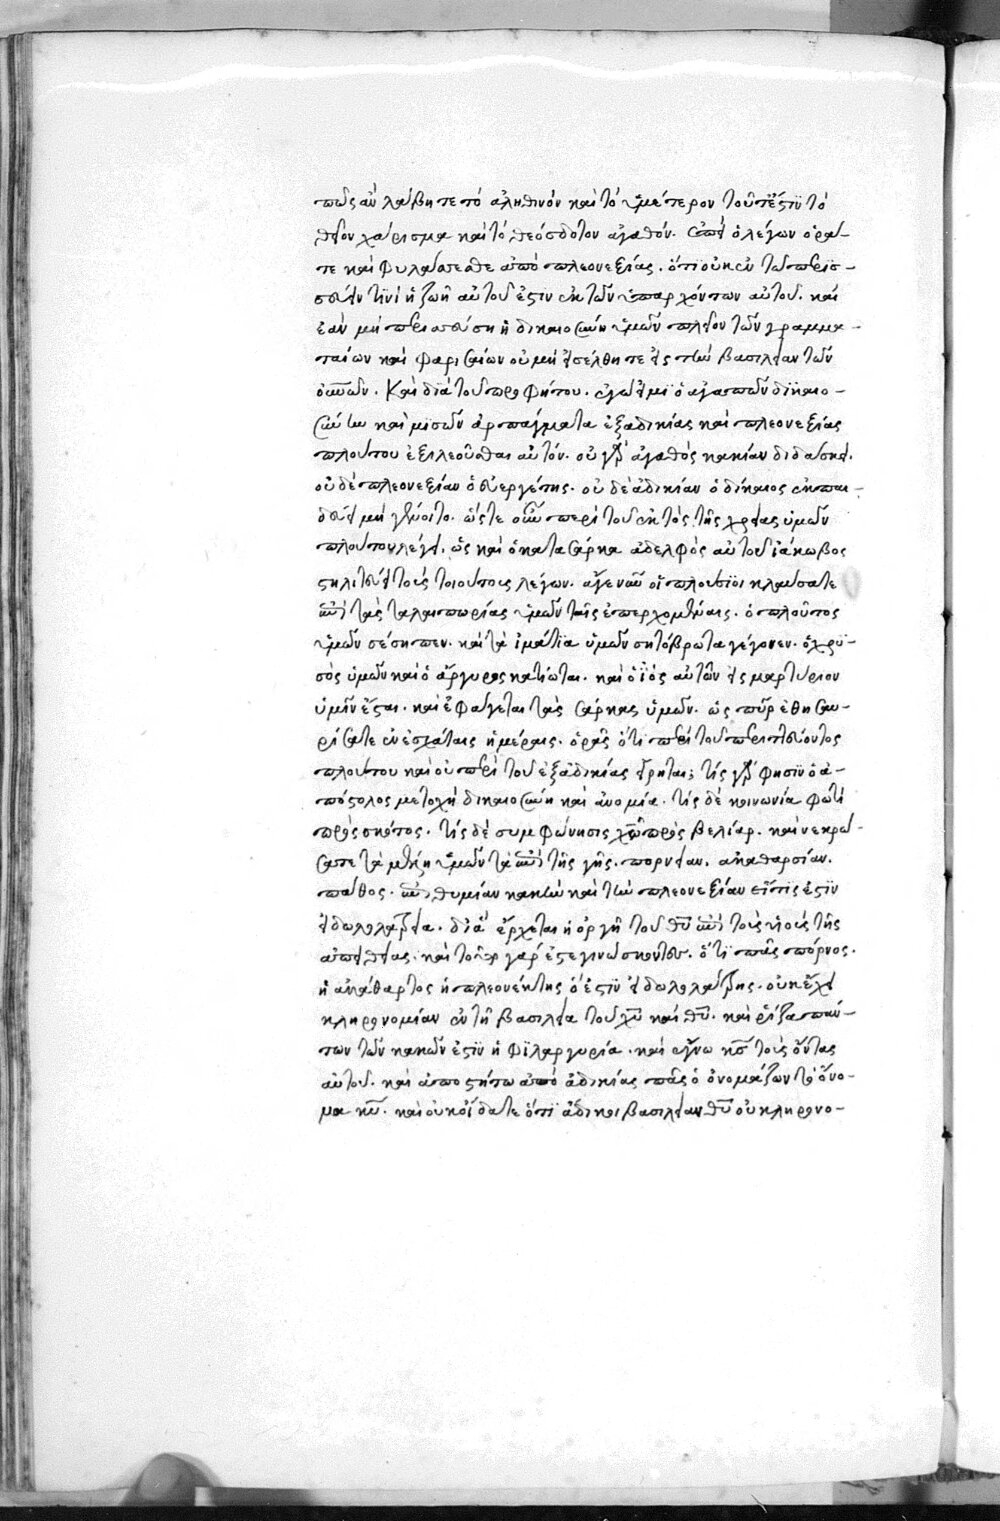 πῶς ἂν λάβητε τὸ ἀληθινὸν καὶ τὸ ὑμέτερον τουτέστϊν τὸ
θεῖον χάρισμα καὶ τὸ θεόσδοτον ἀγαθόν. ὁ λέγων ὁρᾶ-
τε καὶ φυλάσσεσθε ἀπὸ πλεονεξίας. ὅτι οὐκ ἐν τῶ περισ-
σεύειν τινὶ ἡ ζωὴ αὐτοῦ ἐστιν ἐκ τῶν ὑπαρχόντων αὐτοῦ. καὶ
ἐὰν μὴ περισσεύση ἡ δικαιοσύνη ὑμῶν πλεῖον τῶν γραμμα-
ταίων καὶ φαρισαίων οὐ μὴ εἰσέλθητε εἰς τὴν βασιλείαν τῶν
οὐνῶν. Καὶ διὰ τοῦ προφήτου. ἐγώ εἰμι ὁ ἀγαπῶν δϊκαιο-
σύνην καὶ μϊσῶν ἁρπάγματα ἐξ ἀδικίας καὶ πλεονεξίας
πλούτου ἐξιλεοῦσθαι αὐτόν. οὐ γὰρ ἀγαθὸς κακίαν διδάσκει.
οὐδὲ πλεονεξίαν ὁ εὐεργέτης. οὐδὲ ἀδικίαν ὁ δίκαιος ἐκπαι-
δεύει μὴ γένοιτο. ὥστε οὖν περὶ τοῦ ἐκτὸς τῆς χρείας ὑμῶν
πλούτου λέγει. ὡς καὶ ὁ κατὰ σάρκα ἀδελφὸς αὐτοῦ ἰάκωβος
στηλιτεύει τοὺς τοιούτους λέγων. ἄγε νῦν οἱ πλούσϊοι κλαύσατε
ἐπὶ ταῖς ταλαιπωρίας ὑμῶν ταῖς ἐπερχομέναις. ὁ πλοῦτος
ὑμῶν σέσηπεν. καὶ τὰ ἱμάτϊα ὑμῶν σητόβρωτα γέγονεν. ὁ χρϋ-
σὸς ὑμῶν καὶ ὁ ἄργυρος κατίωται. καὶ ὁ ϊὸς αὐτῶν εἰς μαρτύριον
ὑμῖν ἔσται. καὶ φάγεται τὰς σάρκας ὑμῶν. ὡς πῦρ ἐθησαυ-
ρίσατε ἐν ἐσχάταις ἡμέραις. ὁρᾶς ὅτι περὶ τοῦ περιττεύοντος
πλούτου καὶ οὐ περὶ τοῦ ἐξ ἀδικίας εἴρηται; τίς γὰρ φησϊν ὁ ἀ-
πόστολος μετοχὴ δικαιοσύνη καὶ ἀνομία. τίς δὲ κοινωνία φωτὶ
πρὸς σκότος. τίς δὲ συμφώνησις χῶ πρὸς βελίαρ. καὶ νεκρώ-
σατε τὰ μέλη ὑμῶν τὰ ἐπὶ τῆς γῆς. πορνείαν. ἀκαθαρσίαν.
πάθος. ἐπιθυμίαν κακὴν καὶ τὴν πλεονεξίαν εἴτις ἐστϊν
εἰδωλολατρεία. δι' ἃ ἔρχεται ἡ ὀργὴ τοῦ θῦ ἐπὶ τοὺς υἱοὺς τῆς
ἀπειθείας. καὶ τοῦτο γὰρ ἐστε γινώσκοντες. ὅτϊ πᾶς πόρνος.
ἢ ἀκάθαρτος ἢ πλεονέκτης ὅ ἐστϊν εἰδωλολάτρης. οὐκ ἔχει
κληρονομίαν ἐν τῆ βασιλεία τοῦ χῦ καὶ θῦ. καὶ ρίζα πάν-
των τῶν κακῶν ἐστϊν ἡ φϊλαργυρία. καὶ ἔγνω κς τοὺς ὄντας
αὐτοῦ. καὶ ἀποστήτω ἀπὸ ἀδικίας πᾶς ὁ ὀνομάζων τὸ ὄνο-
μα κῦ. καὶ οὐκ οἴδατε ὅτϊ ἄδικοι βασιλείαν θῦ οὐ κληρονο-